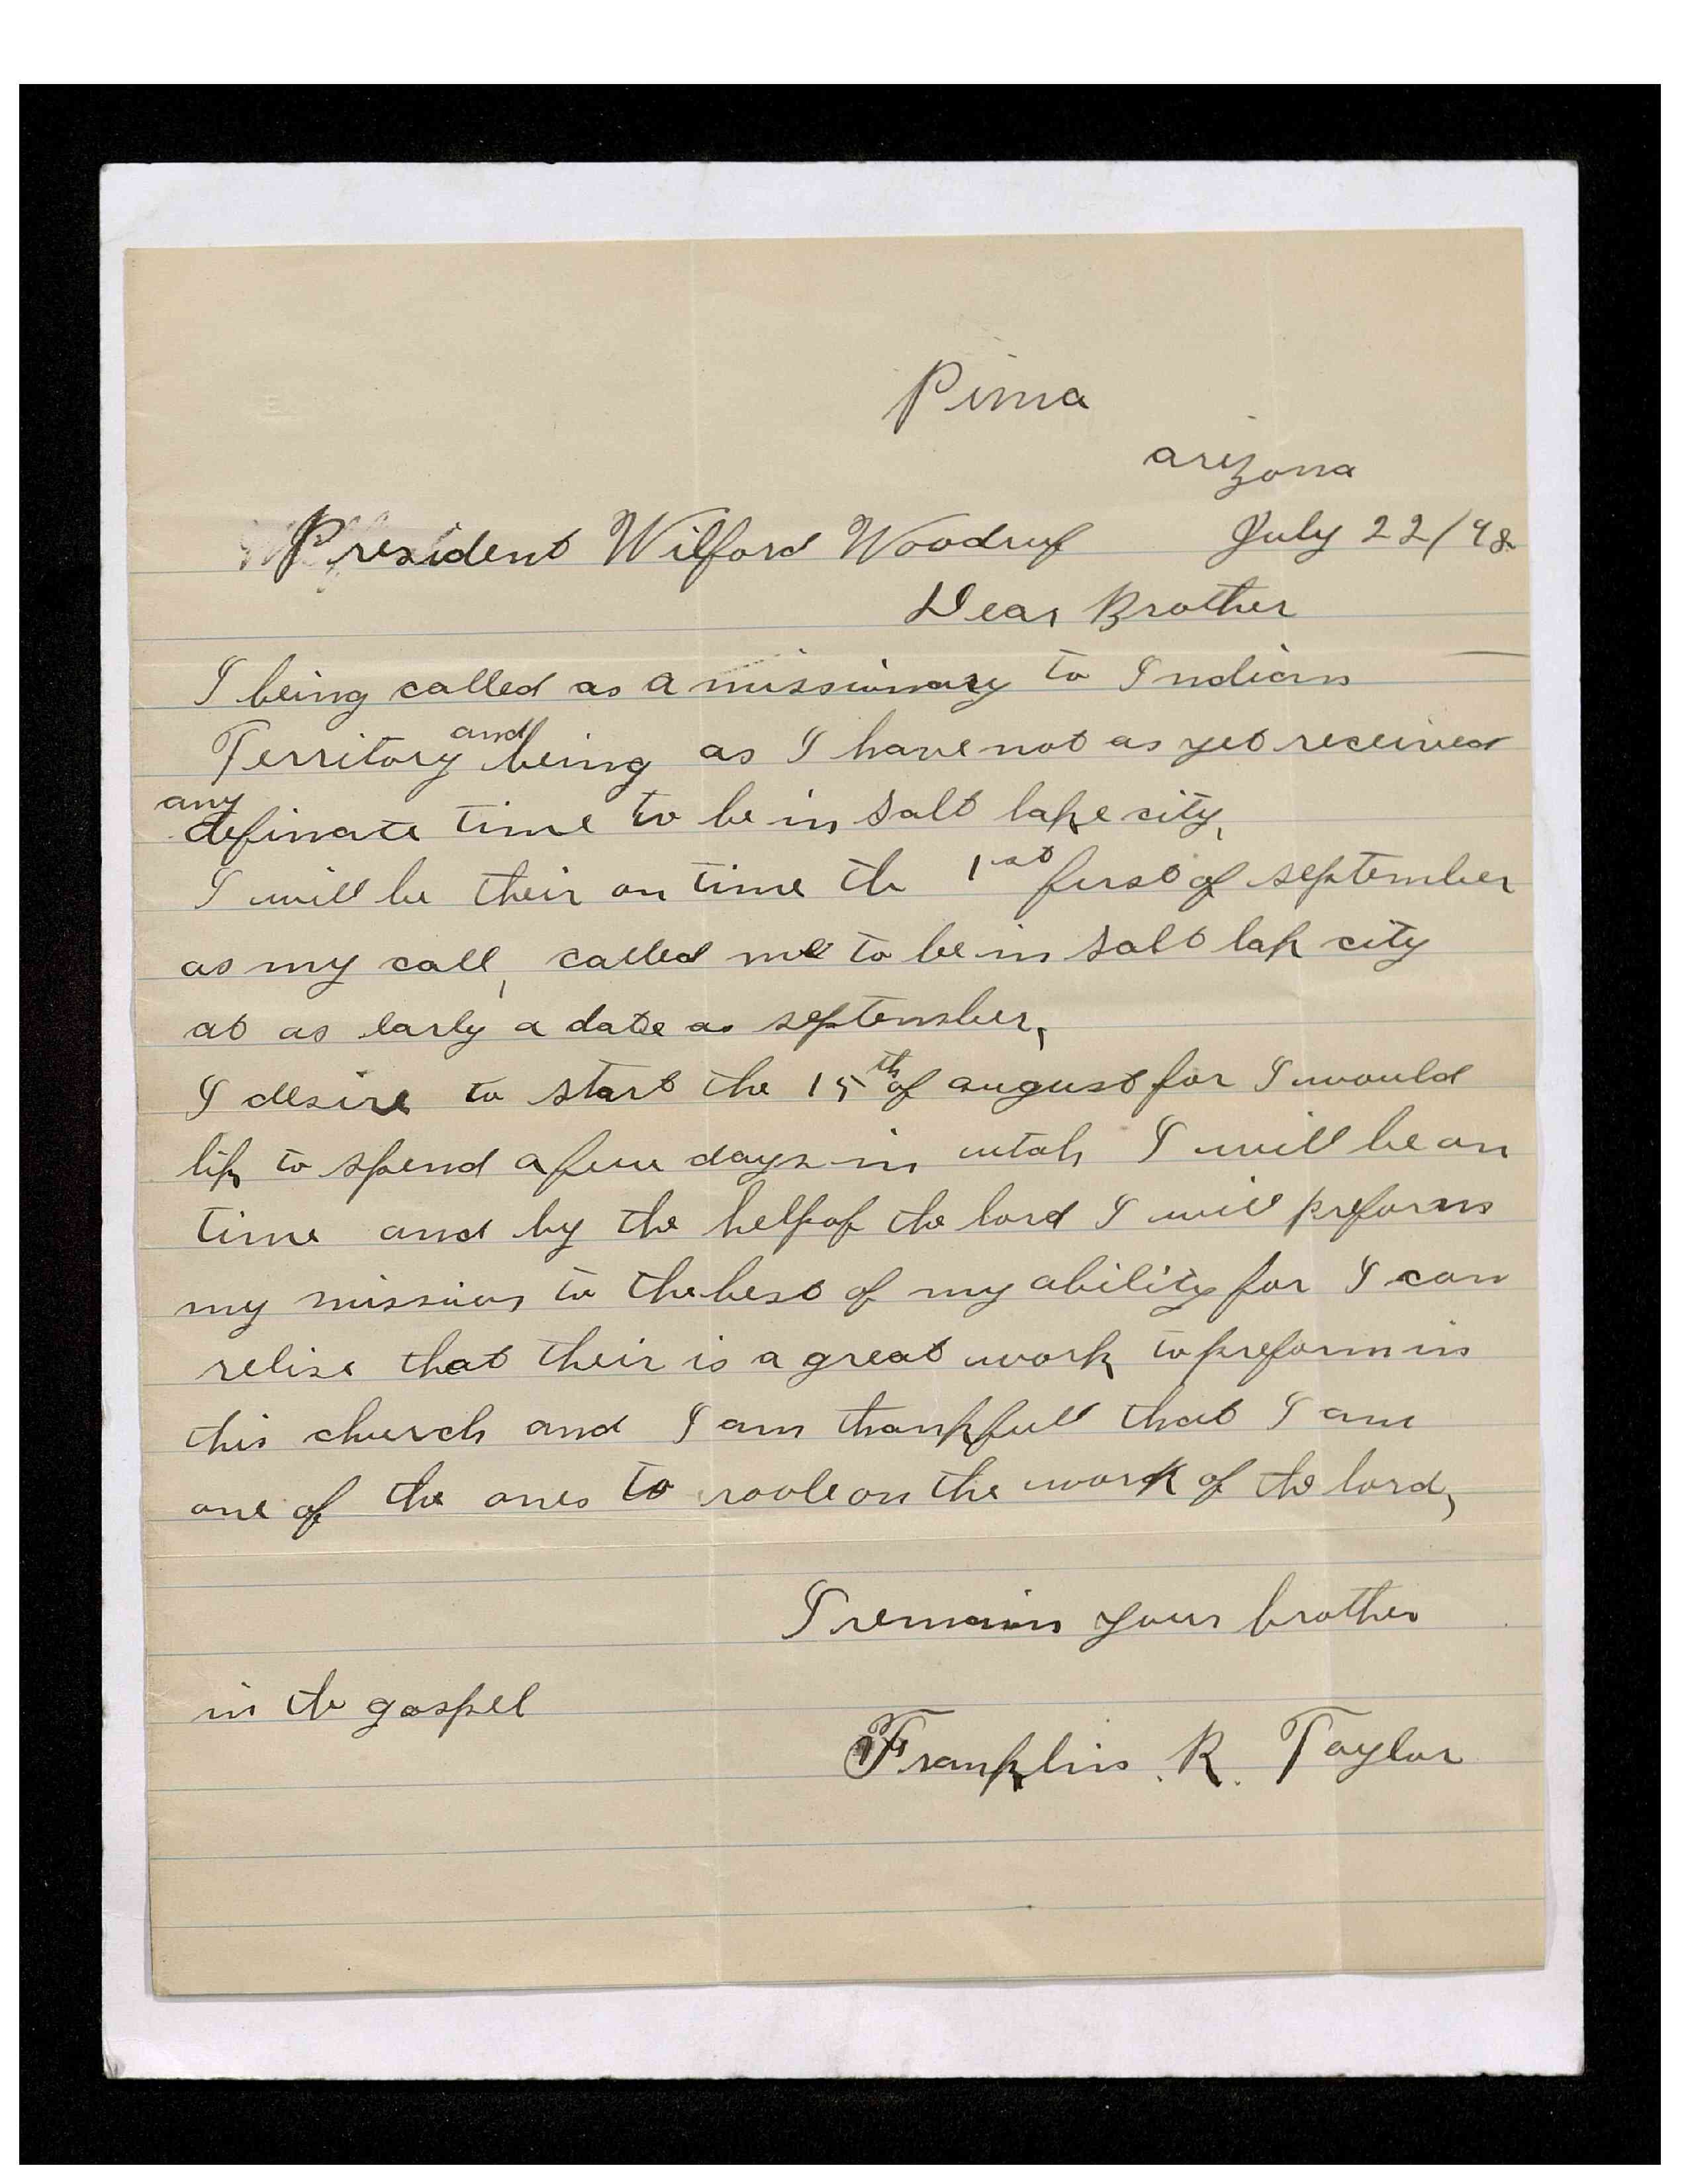 Pima
arizona
President Wilford Woodruf July 22/98
Dear Brother
I being called as a missionary to Indian
Territory and being as I have not as yet received
any definate time to be in Salt lake city,
I will be their on time the 1st first of september
as my call, called me to be in Salt lak city
at as early a date as september,
I desire to start the 15th of august for I would
lik to spend a few days in utah I will be on
time and by the help of the lord I will preform
my mission to the best of my ability for I can
relise that their is a great work to preform in
this church and I am thankfull that I am
one of the ones to roole on the work of the lord,
I remain your brother
in the gospel
Franklin R. Taylor